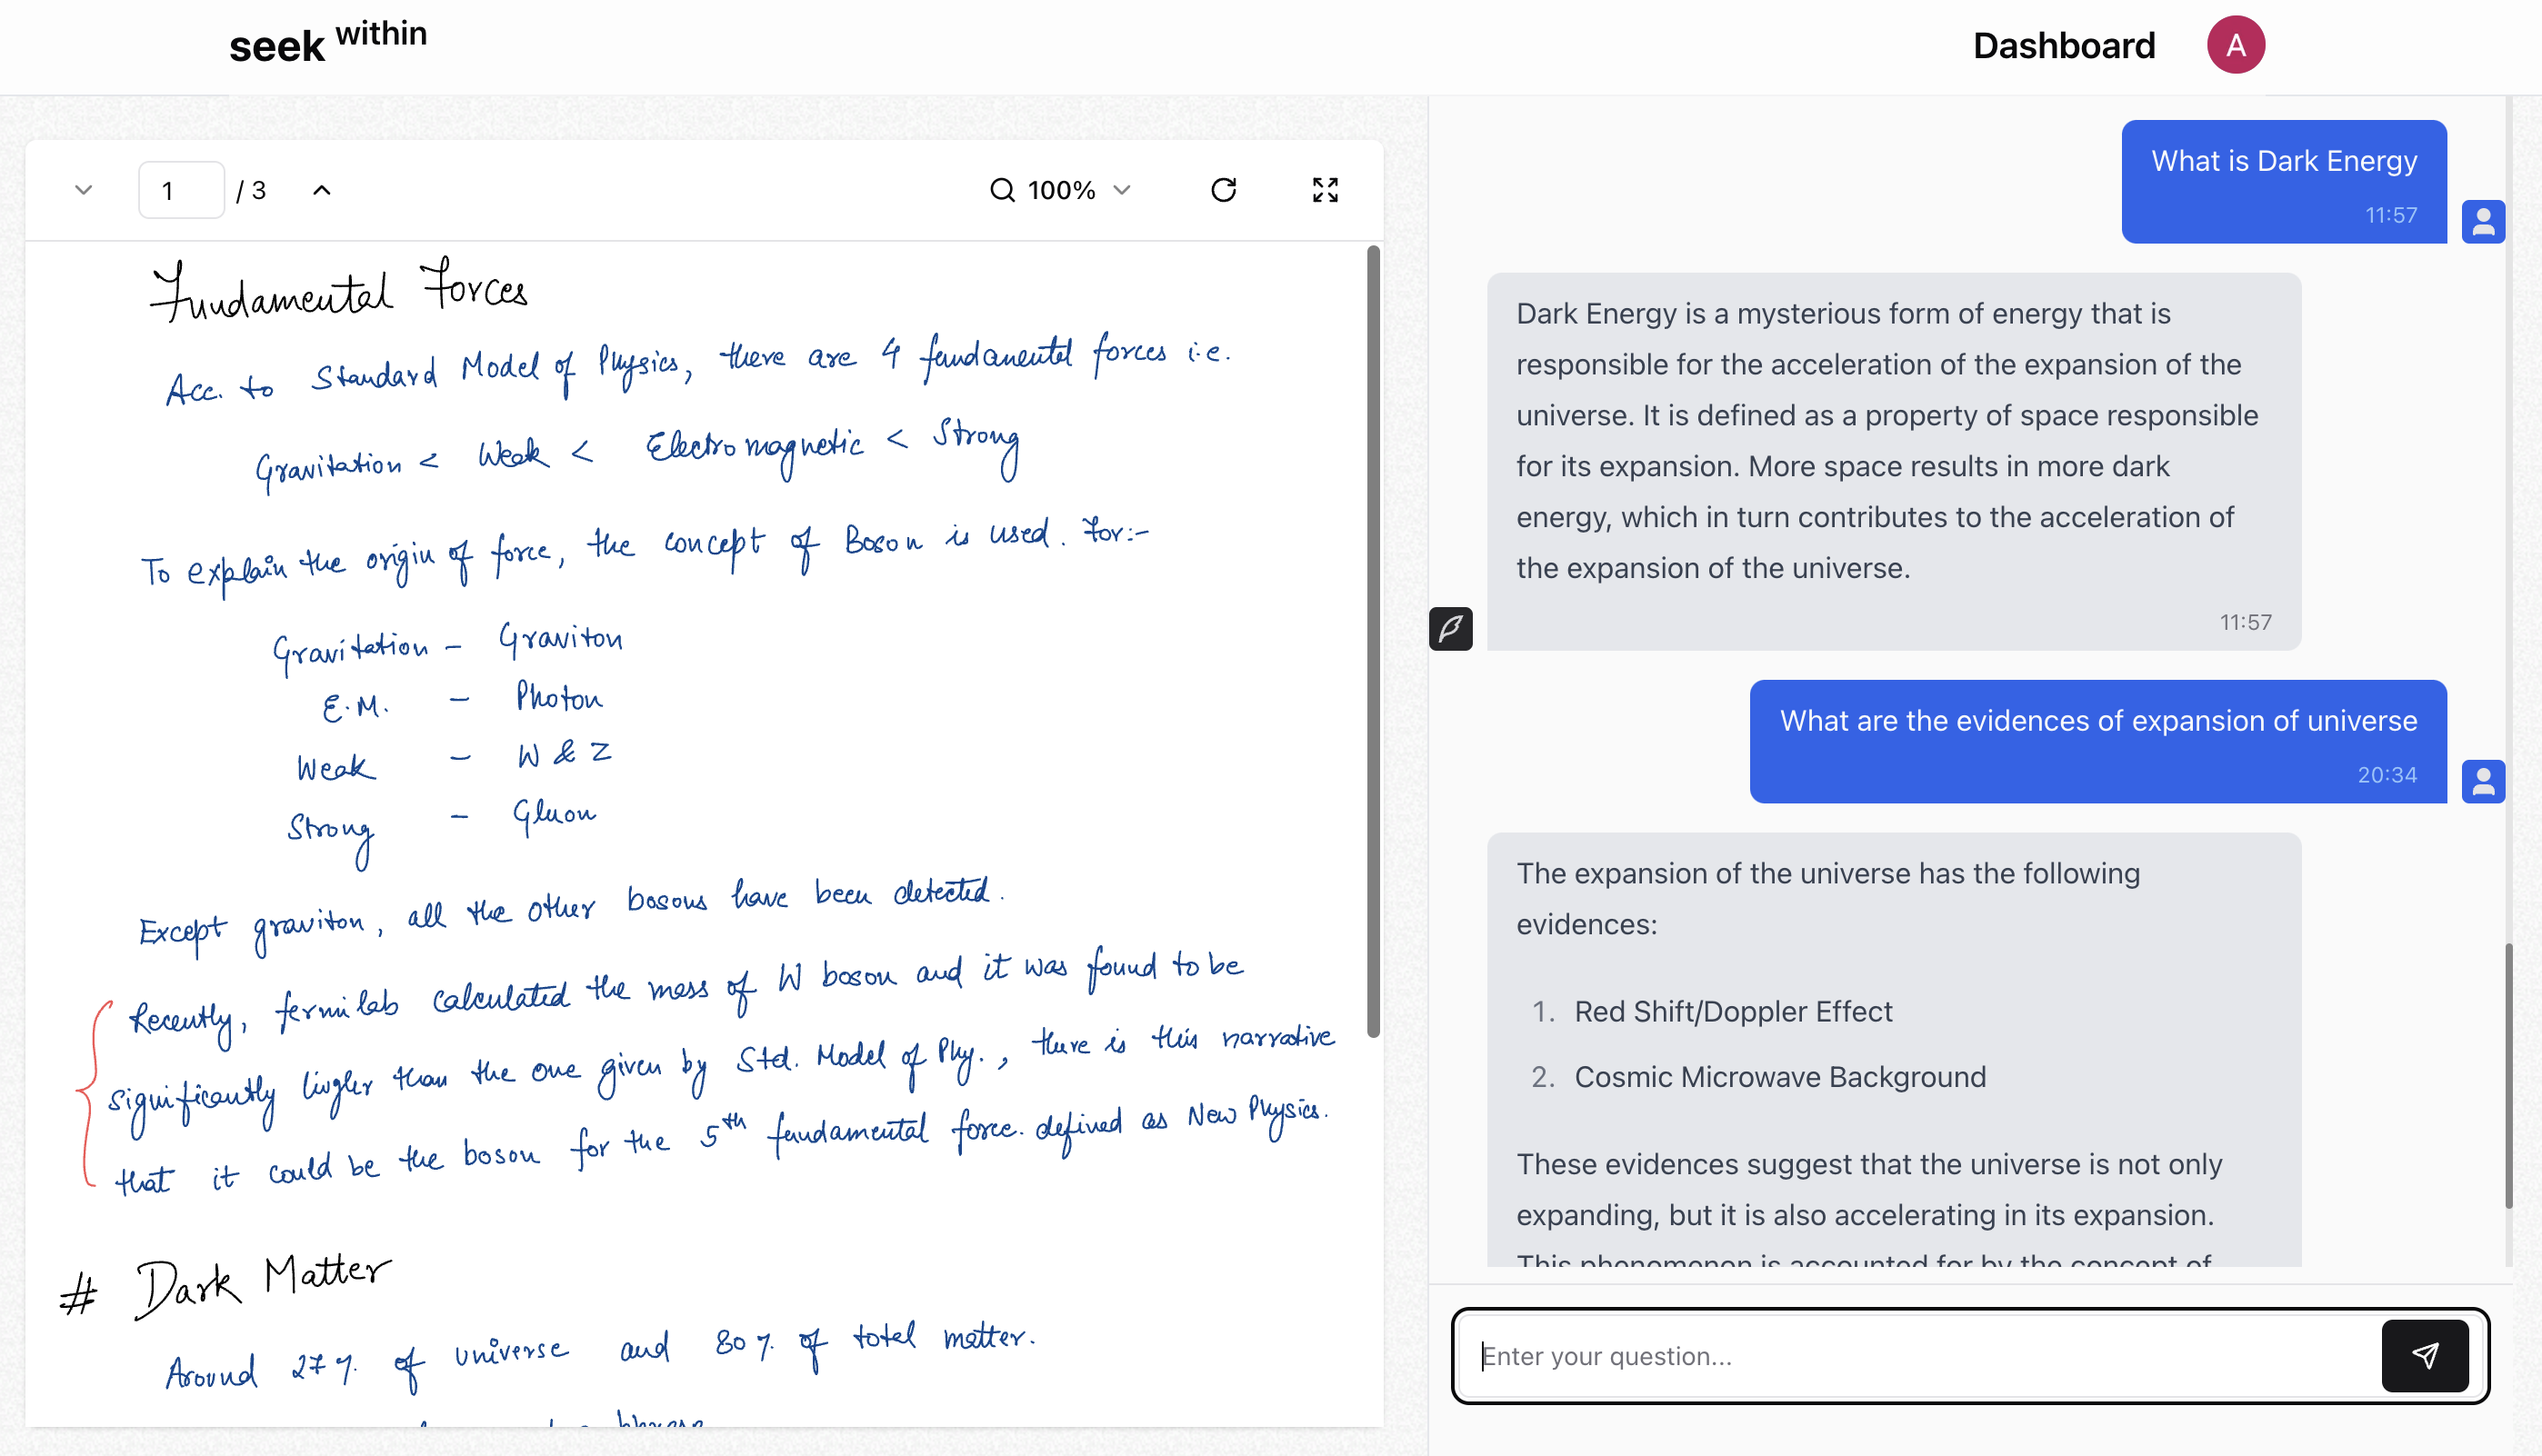 seek within
Dashboard
A
1 / 3
100%
Fundamental Forces
Acc. to Standard Model of Physics, there are 4 fundamental forces i.e.
Gravitation < Weak < Electromagnetic < Strong
To explain the origin of force, the concept of Boson is used. For:-
Gravitation - Graviton
E.M. - Photon
Weak - W & Z
Strong - Gluon
Except graviton, all the other bosons have been detected.
Recently, fermilab calculated the mass of W boson and it was found to be
significantly than the one given by Std. Model of Phy., there is this narrative
that it could be the boson for the 5th fundamental force. defined as New Physics.
# Dark Matter
Around 27% of universe and 80% of total matter.
What is Dark Energy
11:57
Dark Energy is a mysterious form of energy that is
responsible for the acceleration of the expansion of the
universe. It is defined as a property of space responsible
for its expansion. More space results in more dark
energy, which in turn contributes to the acceleration of
the expansion of the universe.
11:57
What are the evidences of expansion of universe
20:34
The expansion of the universe has the following
evidences:
1. Red Shift/Doppler Effect
2. Cosmic Microwave Background
These evidences suggest that the universe is not only
expanding, but it is also accelerating in its expansion.
This phenomenon is accounted for by the concept of
Enter your question...